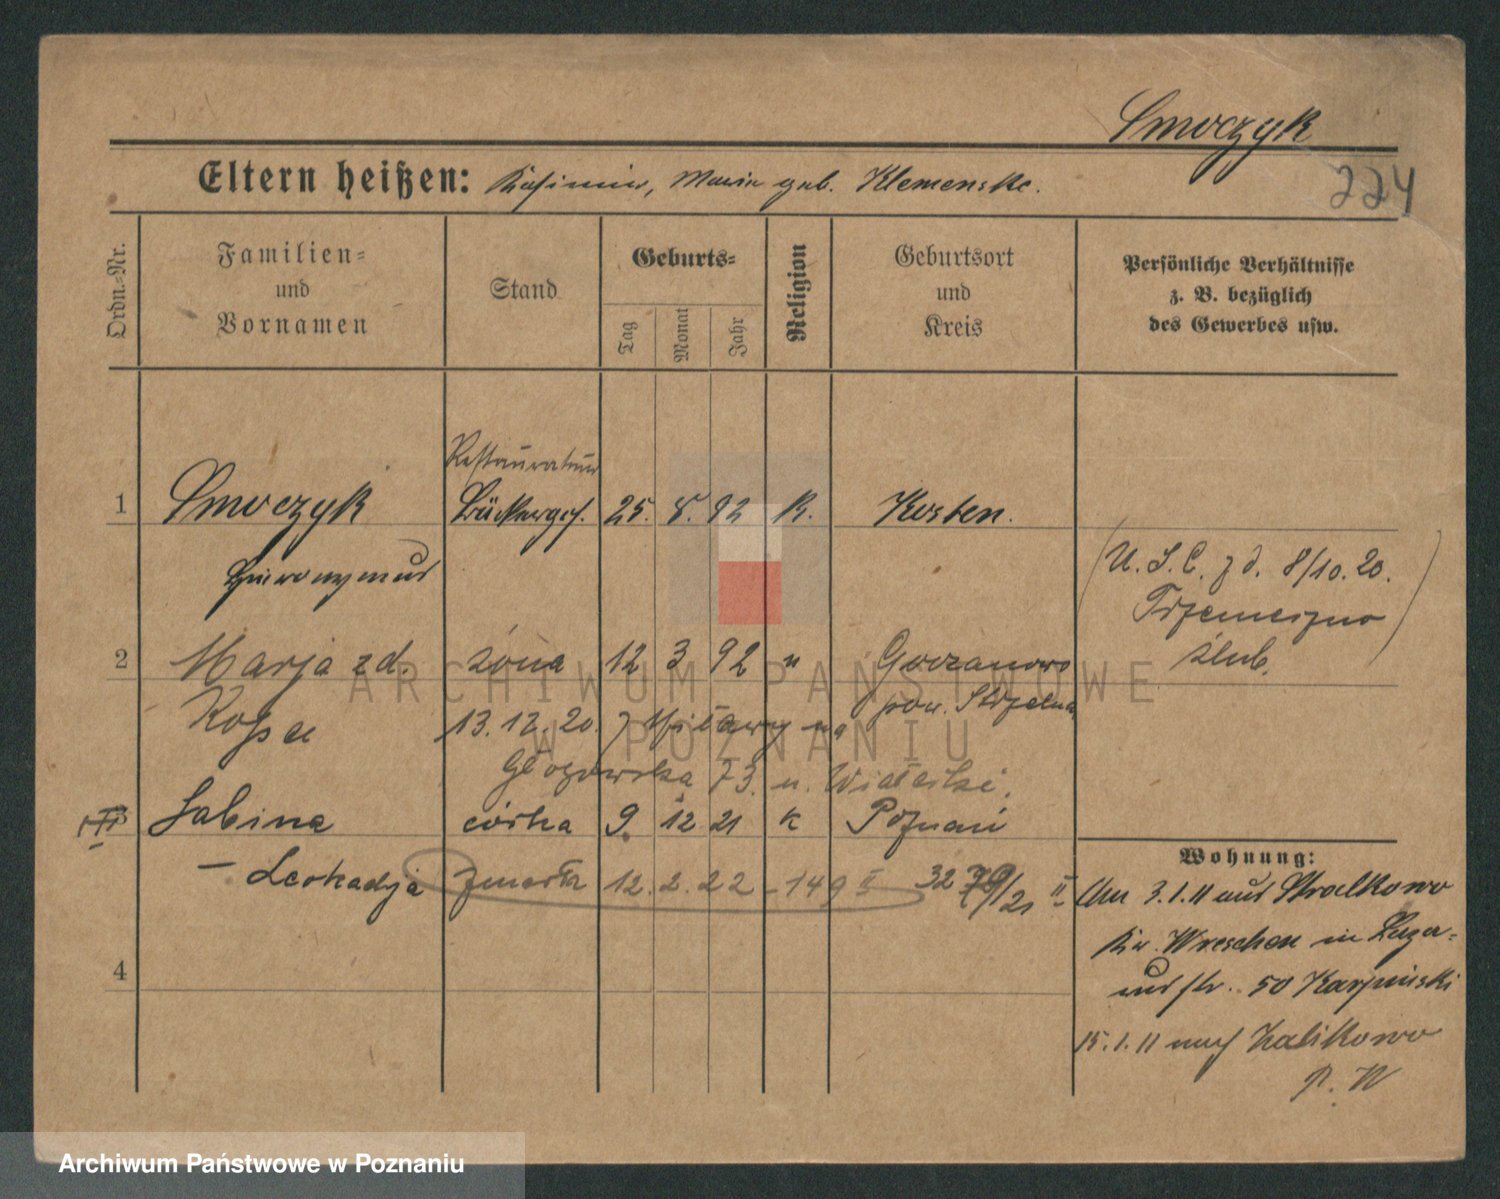 Smoczyk
224
Eltern heißen: Kasimir, Maria geb. Klemenske.
Ordn.-Nr.
Familien-
und
Vornamen
Stand
Geburts-
Tag
Monat
Jahr
Religion
Geburtsort
und
Kreis
Persönliche Verhältnisse
z. B. bezüglich
des Gewerbes usw.
Restaurateur
1 Smoczyk Bäckerges. 25. 8. 92 K. Kosten.
Hieronymus
(U. S. C. z d. 8/10. 20.
Trzemeszno
ślub.)
2 Marja zd. żona 12 3 92 " Gorzanowo
pow. Strzelno
13. 12. 20. z na
Głogowska 73. u.
III Sabina córka 9. 12 21 k Poznań
– Leokadyja zmarła 12. 2. 22 – 149 II 32 79/21 II
4
Wohnung:
Am 3.1.11 aus Stralkowo
Kr. Wreschen in Luza-
russtr. 50 Karpinski
15.1.11 nach Zalikowo
P. W
ARCHIWUM PAŃSTWOWE
W POZNANIU
Archiwum Państwowe w Poznaniu